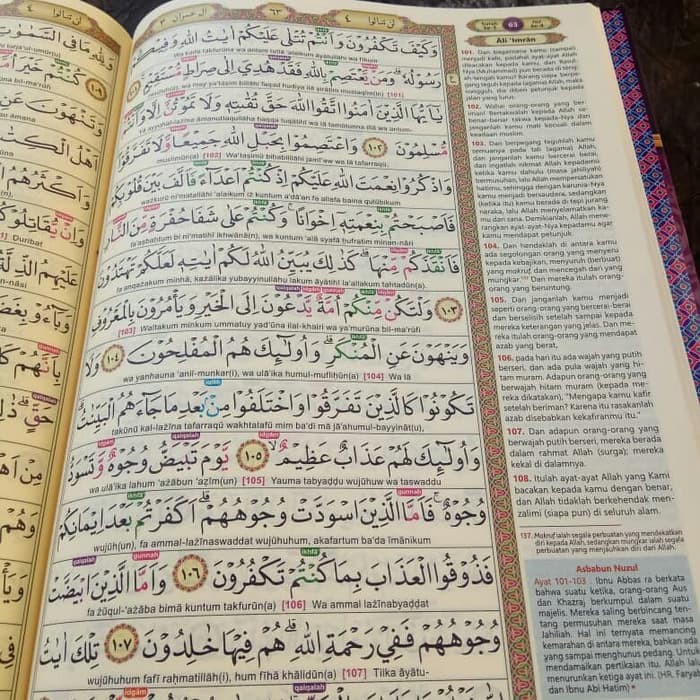 لن تنالوا ٤
٦٣
ال عمران ٣
وَكَيْفَ تَكْفُرُونَ وَاَنْتُمْ تُتْلٰى عَلَيْكُمْ اٰيٰتُ اللّٰهِ وَفِيْكُمْ
Wa kaifa takfurūna wa antum tutlā 'alaikum āyātullāhi wa fīkum
رَسُوْلُهٗ ۗ وَمَنْ يَّعْتَصِمْ بِاللّٰهِ فَقَدْ هُدِيَ اِلٰى صِرَاطٍ مُّسْتَقِيْمٍ ١٠١
rasūluh(ū), wa may ya'taṣim billāhi faqad hudiya ilā ṣirāṭim mustaqīm(in) [101]
يٰٓاَيُّهَا الَّذِيْنَ اٰمَنُوا اتَّقُوا اللّٰهَ حَقَّ تُقٰىتِهٖ وَلَا تَمُوْتُنَّ اِلَّا وَاَنْتُمْ
Yā ayyuhal-lażīna āmanuttaqullāha ḥaqqa tuqātihī wa lā tamūtunna illā wa antum-
مُّسْلِمُوْنَ ١٠٢ وَاعْتَصِمُوْا بِحَبْلِ اللّٰهِ جَمِيْعًا وَّلَا تَفَرَّقُوْا
muslimūn(a) [102] Wa'taṣimū biḥablillāhi jamī'aw wa lā tafarraqū,
وَاذْكُرُوْا نِعْمَتَ اللّٰهِ عَلَيْكُمْ اِذْ كُنْتُمْ اَعْدَاۤءً فَاَلَّفَ بَيْنَ قُلُوْبِكُمْ
ważkurū ni'matallāhi 'alaikum iż kuntum a'dā'an fa allafa baina qulūbikum
فَاَصْبَحْتُمْ بِنِعْمَتِهٖٓ اِخْوَانًا ۚ وَكُنْتُمْ عَلٰى شَفَا حُفْرَةٍ مِّنَ النَّارِ
fa aṣbaḥtum bi ni'matihī ikhwānā(n), wa kuntum 'alā syafā ḥufratim minan-nāri
فَاَنْقَذَكُمْ مِّنْهَا ۗ كَذٰلِكَ يُبَيِّنُ اللّٰهُ لَكُمْ اٰيٰتِهٖ لَعَلَّكُمْ تَهْتَدُوْنَ
fa anqażakum minhā, każālika yubayyinullāhu lakum āyātihī la'allakum tahtadūn(a).
١٠٣ وَلْتَكُنْ مِّنْكُمْ اُمَّةٌ يَّدْعُوْنَ اِلَى الْخَيْرِ وَيَأْمُرُوْنَ بِالْمَعْرُوْفِ
[103] Waltakum minkum ummatuy yad'ūna ilal-khairi wa ya'murūna bil-ma'rūfi
وَيَنْهَوْنَ عَنِ الْمُنْكَرِ ۗ وَاُولٰۤىِٕكَ هُمُ الْمُفْلِحُوْنَ ١٠٤ وَلَا
wa yanhauna 'anil-munkar(i), wa ulā'ika humul-mufliḥūn(a) [104] Wa lā
تَكُوْنُوْا كَالَّذِيْنَ تَفَرَّقُوْا وَاخْتَلَفُوْا مِنْۢ بَعْدِ مَا جَاۤءَهُمُ الْبَيِّنٰتُ ۗ
takūnū kal-lażīna tafarraqū wakhtalafū mim ba'di mā jā'ahumul-bayyināt(u),
وَاُولٰۤىِٕكَ لَهُمْ عَذَابٌ عَظِيْمٌ ١٠٥ يَّوْمَ تَبْيَضُّ وُجُوْهٌ وَّتَسْوَدُّ
wa ulā'ika lahum 'ażābun 'aẓīm(un) [105] Yauma tabyaḍḍu wujūhuw wa taswaddu
وُجُوْهٌ ۚ فَاَمَّا الَّذِيْنَ اسْوَدَّتْ وُجُوْهُهُمْ ۗ اَكَفَرْتُمْ بَعْدَ اِيْمَانِكُمْ
wujūh(un), fa ammal-lażīnaswaddat wujūhuhum, akafartum ba'da īmānikum
فَذُوْقُوا الْعَذَابَ بِمَا كُنْتُمْ تَكْفُرُوْنَ ١٠٦ وَاَمَّا الَّذِيْنَ ابْيَضَّتْ
fa żūqul-'ażāba bimā kuntum takfurūn(a) [106] Wa ammal lażīnabyaḍḍat
وُجُوْهُهُمْ فَفِيْ رَحْمَةِ اللّٰهِ ۗ هُمْ فِيْهَا خٰلِدُوْنَ ١٠٧ تِلْكَ اٰيٰتُ
wujūhuhum fafī raḥmatillāh(i), hum fīhā khālidūn(a) [107] Tilka āyātu-
63
Ali 'Imran
101. Dan bagaimana kamu (sampai)
menjadi kafir, padahal ayat-ayat Allah
dibacakan kepada kamu, dan Rasul-
Nya (Muhammad) pun berada di tenga-
h-tengah kamu? Barang siapa berpe-
gang teguh kepada (agama) Allah, maka
sungguh, dia diberi petunjuk kepada
jalan yang lurus.
102. Wahai orang-orang yang ber-
iman! Bertakwalah kepada Allah se-
benar-benar takwa kepada-Nya dan
janganlah kamu mati kecuali dalam
keadaan muslim.
103. Dan berpegang teguhlah kamu
semuanya pada tali (agama) Allah,
dan janganlah kamu bercerai berai,
dan ingatlah nikmat Allah kepadamu
ketika kamu dahulu (masa jahiliyah)
bermusuhan, lalu Allah mempersatukan
hatimu, sehingga dengan karunia-Nya
kamu menjadi bersaudara, sedangkan
(ketika itu) kamu berada di tepi jurang
neraka, lalu Allah menyelamatkan ka-
mu dari sana. Demikianlah, Allah mene-
rangkan ayat-ayat-Nya kepadamu agar
kamu mendapat petunjuk.
104. Dan hendaklah di antara kamu
ada segolongan orang yang menyeru
kepada kebajikan, menyuruh (berbuat)
yang makruf, dan mencegah dari yang
mungkar.¹³⁷ Dan mereka itulah orang-
orang yang beruntung.
105. Dan janganlah kamu menjadi
seperti orang-orang yang bercerai-berai
dan berselisih setelah sampai kepada
mereka keterangan yang jelas. Dan me-
reka itulah orang-orang yang mendapat
azab yang berat.
106. pada hari itu ada wajah yang putih
berseri, dan ada pula wajah yang hi-
tam muram. Adapun orang-orang yang
berwajah hitam muram (kepada me-
reka dikatakan), "Mengapa kamu kafir
setelah beriman? Karena itu rasakanlah
azab disebabkan kekafiranmu itu."
107. Dan adapun orang-orang yang
berwajah putih berseri, mereka berada
dalam rahmat Allah (surga); mereka
kekal di dalamnya.
108. Itulah ayat-ayat Allah yang Kami
bacakan kepada kamu dengan benar,
dan Allah tidaklah berkehendak men-
zalimi (siapa pun) di seluruh alam.
137. Makruf ialah segala perbuatan yang mendekatkan
diri kepada Allah, sedangkan mungkar ialah segala
perbuatan yang menjauhkan diri dari Allah.
Asbabun Nuzul
Ayat 101-103 . Ibnu Abbas ra berkata
bahwa suatu ketika, orang-orang Aus
dan Khazraj berkumpul dalam suatu
majelis. Mereka saling berbincang ten-
tang permusuhan mereka saat masa
Jahiliah. Hal ini ternyata memancing
kemarahan di antara mereka, bahkan ada
yang sampai menghunus pedang. Untuk
mendamaikan pertikaian itu, Allah lalu
menurunkan ketiga ayat ini. (HR. Faryabi
dan Ibnu Abi Hatim)